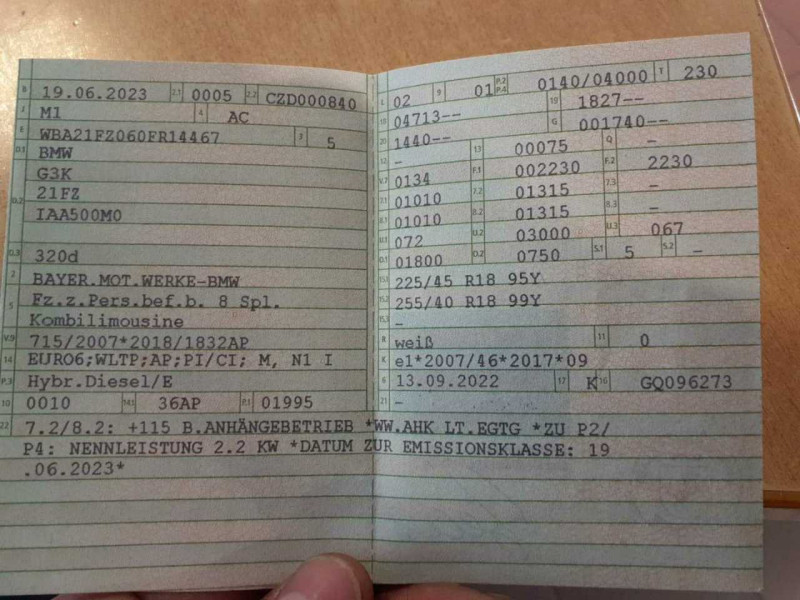 B 19.06.2023 2.1 0005 2.2 CZD000840
J M1 4 AC
E WBA21FZ060FR14467 3 5
D.1 BMW
D.2 G3K
21FZ
IAA500M0
D.3 320d
2 BAYER.MOT.WERKE-BMW
5 Fz.z.Pers.bef.b. 8 Spl.
Kombilimousine
V.9 715/2007*2018/1832AP
14 EURO6;WLTP;AP;PI/CI; M, N1 I
P.3 Hybr.Diesel/E
10 0010 14.1 36AP P.1 01995
L 02 9 01 P.2 P.4 0140/04000 T 230
18 04713-- 19 1827--
20 1440-- G 001740--
- 13 00075 Q -
V.7 0134 F.1 002230 F.2 2230
7.1 01010 7.2 01315 7.3 -
8.1 01010 8.2 01315 8.3 -
U.1 072 U.2 03000 U.3 067
O.1 01800 O.2 0750 S.1 5 S.2 -
15.1 225/45 R18 95Y
15.2 255/40 R18 99Y
15.3 -
R weiß 11 0
K e1*2007/46*2017*09
6 13.09.2022 17 K 16 GQ096273
21 -
22 7.2/8.2: +115 B.ANHÄNGEBETRIEB *WW.AHK LT.EGTG *ZU P2/
P4: NENNLEISTUNG 2.2 KW *DATUM ZUR EMISSIONSKLASSE: 19
.06.2023*